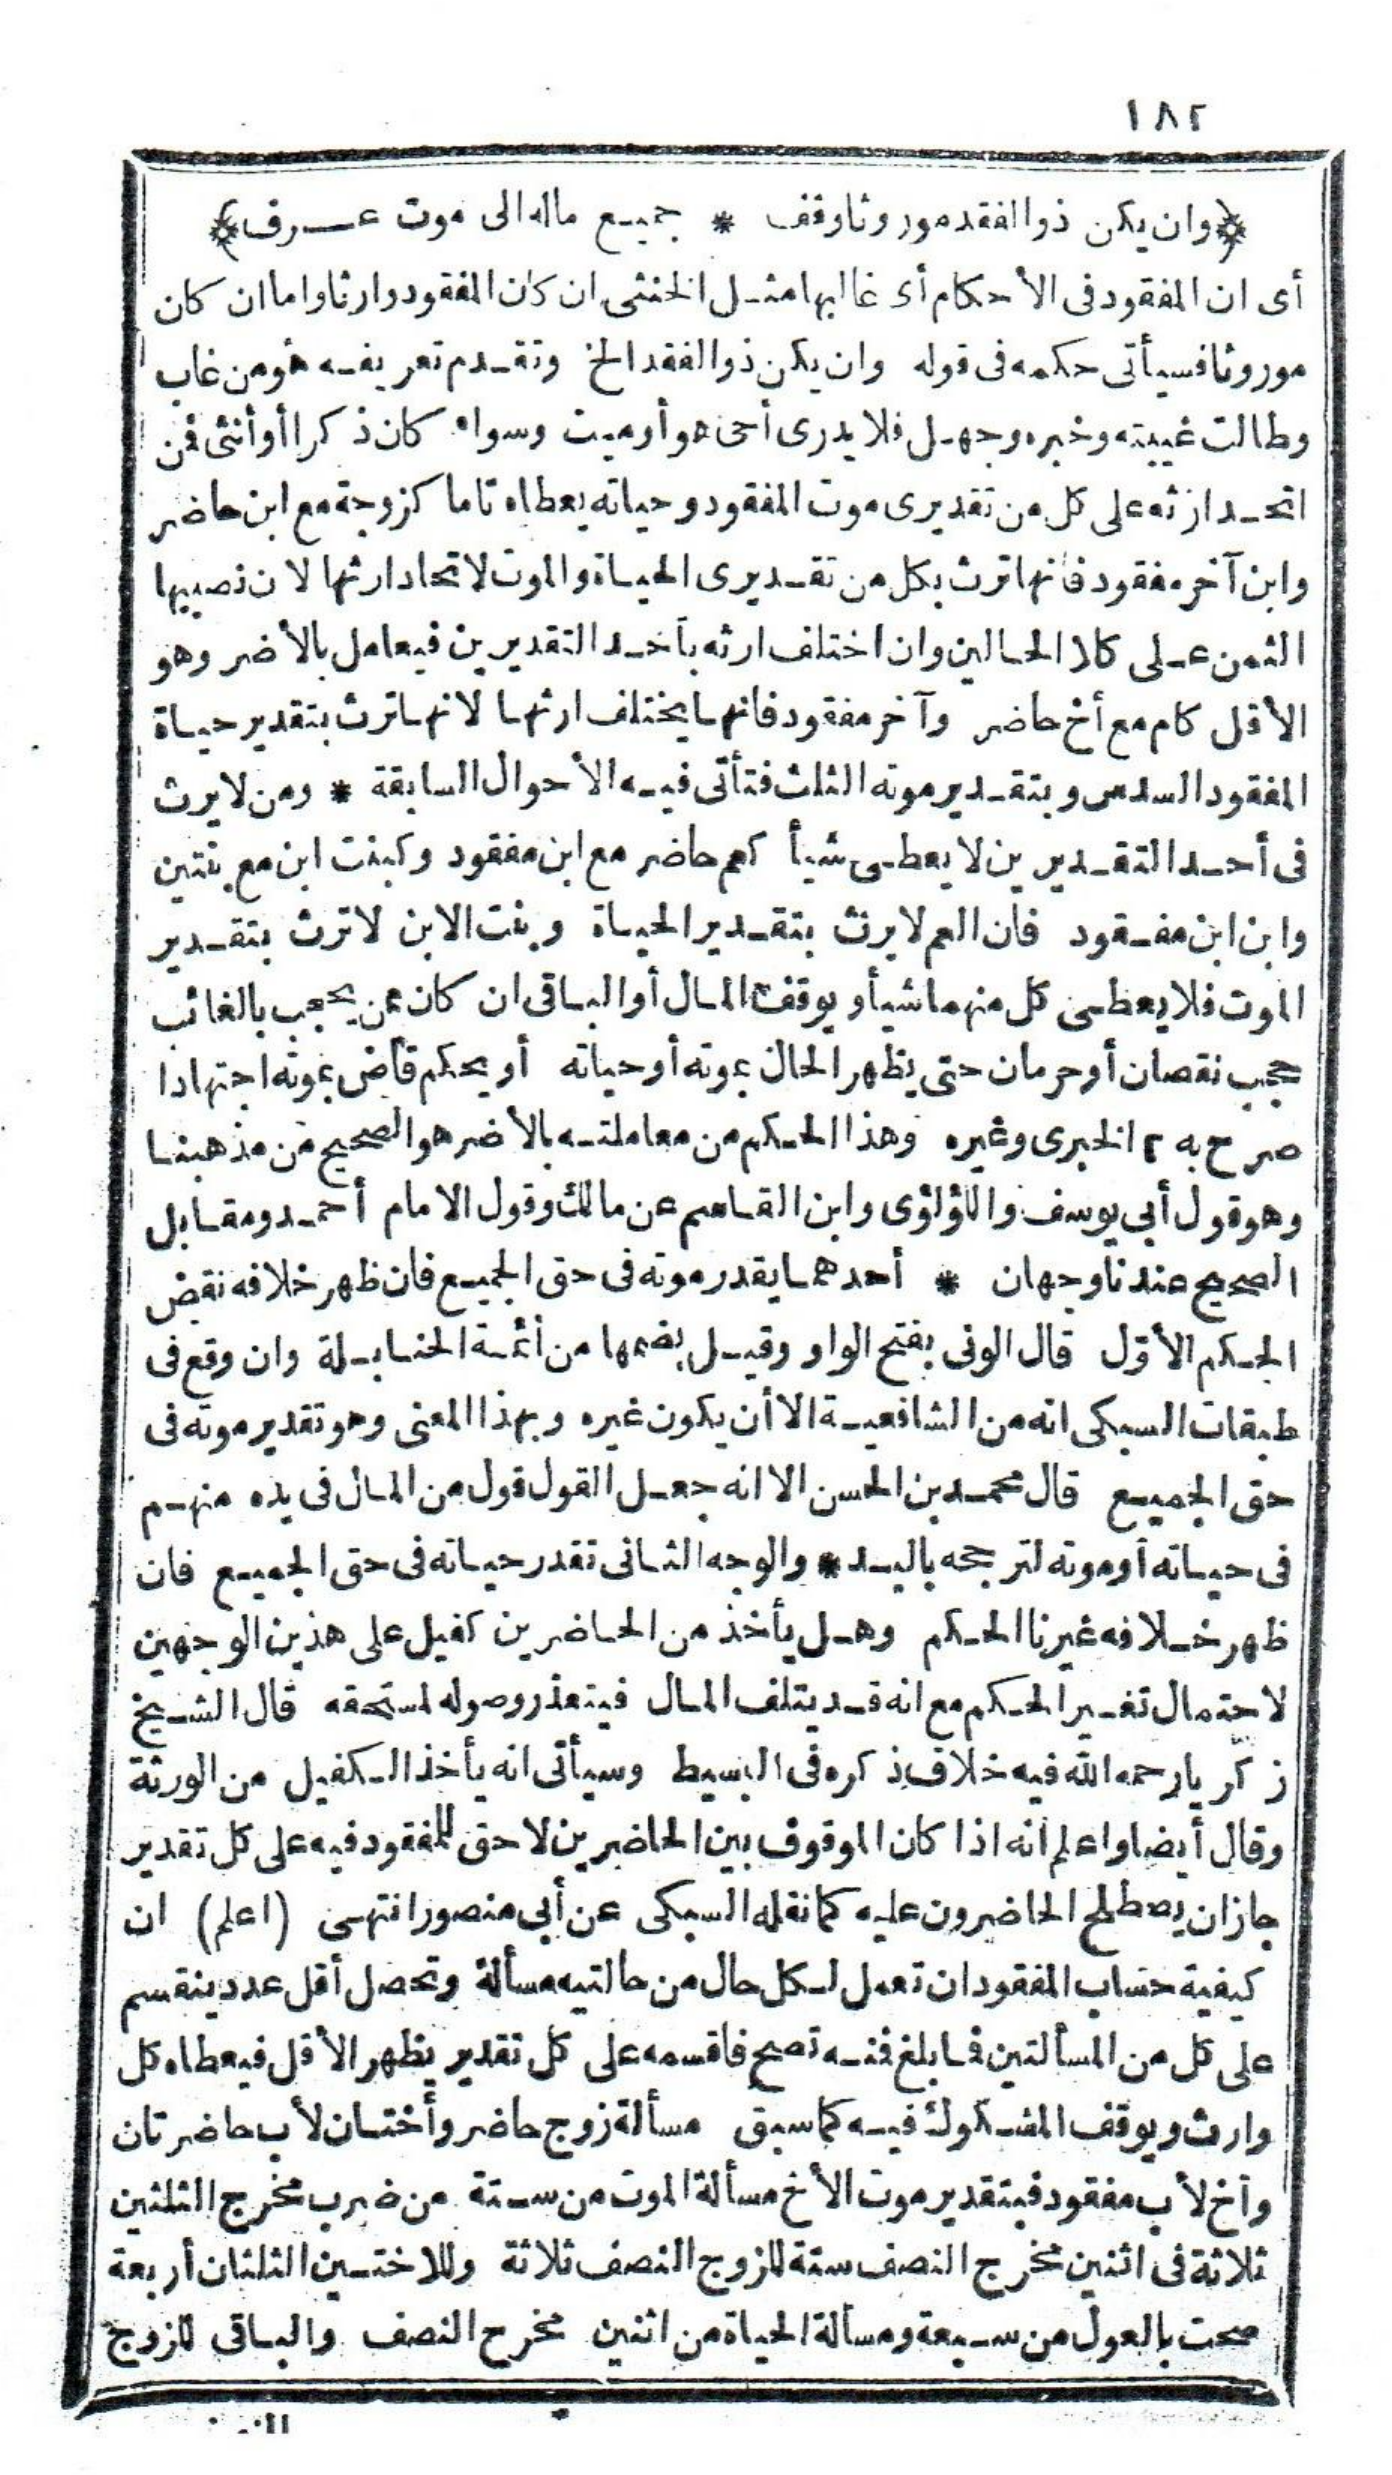 ١٨٢
﴿وان يكن ذو الفقد موروثا وقف * جميع ماله الى موت عرف﴾
أى ان المفقود فى الأحكام أى غالبها مثل الخنثى ان كان المفقود وارثا واما ان كان
موروثا فسيأتى حكمه فى قوله وان يكن ذو الفقد الخ وتقدم تعريفه هو من غاب
وطالت غيبته وخبره وجهل فلا يدرى أحى هو أو ميت وسواء كان ذكرا أو أنثى فمن
اتحد ارثه على كل من تقديرى موت المفقود وحياته يعطاه تاما كزوجة مع ابن حاضر
وابن آخر مفقود فانها ترث بكل من تقديرى الحياة والموت لاتحاد ارثها لان نصيبها
الثمن على كلا الحالين وان اختلف ارثه بأحد التقديرين فيعامل بالأضر وهو
الأقل كام مع أخ حاضر وآخر مفقود فانها يختلف ارثها لانها ترث بتقدير حياة
المفقود السدس وبتقدير موته الثلث فتأتى فيه الأحوال السابقة * ومن لا يرث
فى أحد التقديرين لا يعطى شيأ كعم حاضر مع ابن مفقود وكبنت ابن مع بنتين
وابن ابن مفقود فان العم لا يرث بتقدير الحياة وبنت الابن لا ترث بتقدير
الموت فلا يعطى كل منهما شيأ ويوقف المال أو الباقى ان كان ممن يحجب بالغائب
حجب نقصان أو حرمان حتى يظهر الحال بموته أو حياته أو يحكم قاض بموته اجتهادا
صرح به ٢ الخبرى وغيره وهذا الحكم من معاملته بالأضر هو الصحيح من مذهبنا
وهو قول أبى يوسف واللؤلؤى وابن القاسم عن مالك وقول الامام أحمد ومقابل
الصحيح عندنا وجهان * أحدهما يقدر موته فى حق الجميع فان ظهر خلافه نقض
الحكم الأول قال الونى بفتح الواو وقيل بضمها من أئمة الحنابلة وان وقع فى
طبقات السبكى انه من الشافعية الا أن يكون غيره وبهذا المعنى وهو تقدير موته فى
حق الجميع قال محمد بن الحسن الا انه جعل القول قول من المال فى يده منهم
فى حياته أو موته لترجحه باليد * والوجه الثانى تقدر حياته فى حق الجميع فان
ظهر خلافه غيرنا الحكم وهل يأخذ من الحاضرين كفيل على هذين الوجهين
لاحتمال تغير الحكم مع انه قد يتلف المال فيتعذر وصوله لمستحقه قال الشيخ
زكريا رحمه الله فيه خلاف ذكره فى البسيط وسيأتى انه يأخذ الكفيل من الورثة
وقال أيضا واعلم انه اذا كان الموقوف بين الحاضرين لا حق للمفقود فيه على كل تقدير
جاز ان يصطلح الحاضرون عليه كما نقله السبكى عن أبى منصور انتهى (اعلم) ان
كيفية حساب المفقود ان تعمل لكل حال من حالتيه مسألة وتحصل أقل عدد ينقسم
على كل من المسألتين فما بلغ فمنه تصح فاقسمه على كل تقدير يظهر الأقل فيعطاه كل
وارث ويوقف المشكوك فيه كما سبق مسألة زوج حاضر وأختان لأب حاضرتان
وأخ لأب مفقود فبتقدير موت الأخ مسألة الموت من ستة من ضرب مخرج الثلثين
ثلاثة فى اثنين مخرج النصف ستة للزوج النصف ثلاثة وللاختين الثلثان أربعة
صحت بالعول من سبعة ومسألة الحياة من اثنين مخرج النصف والباقى للزوج